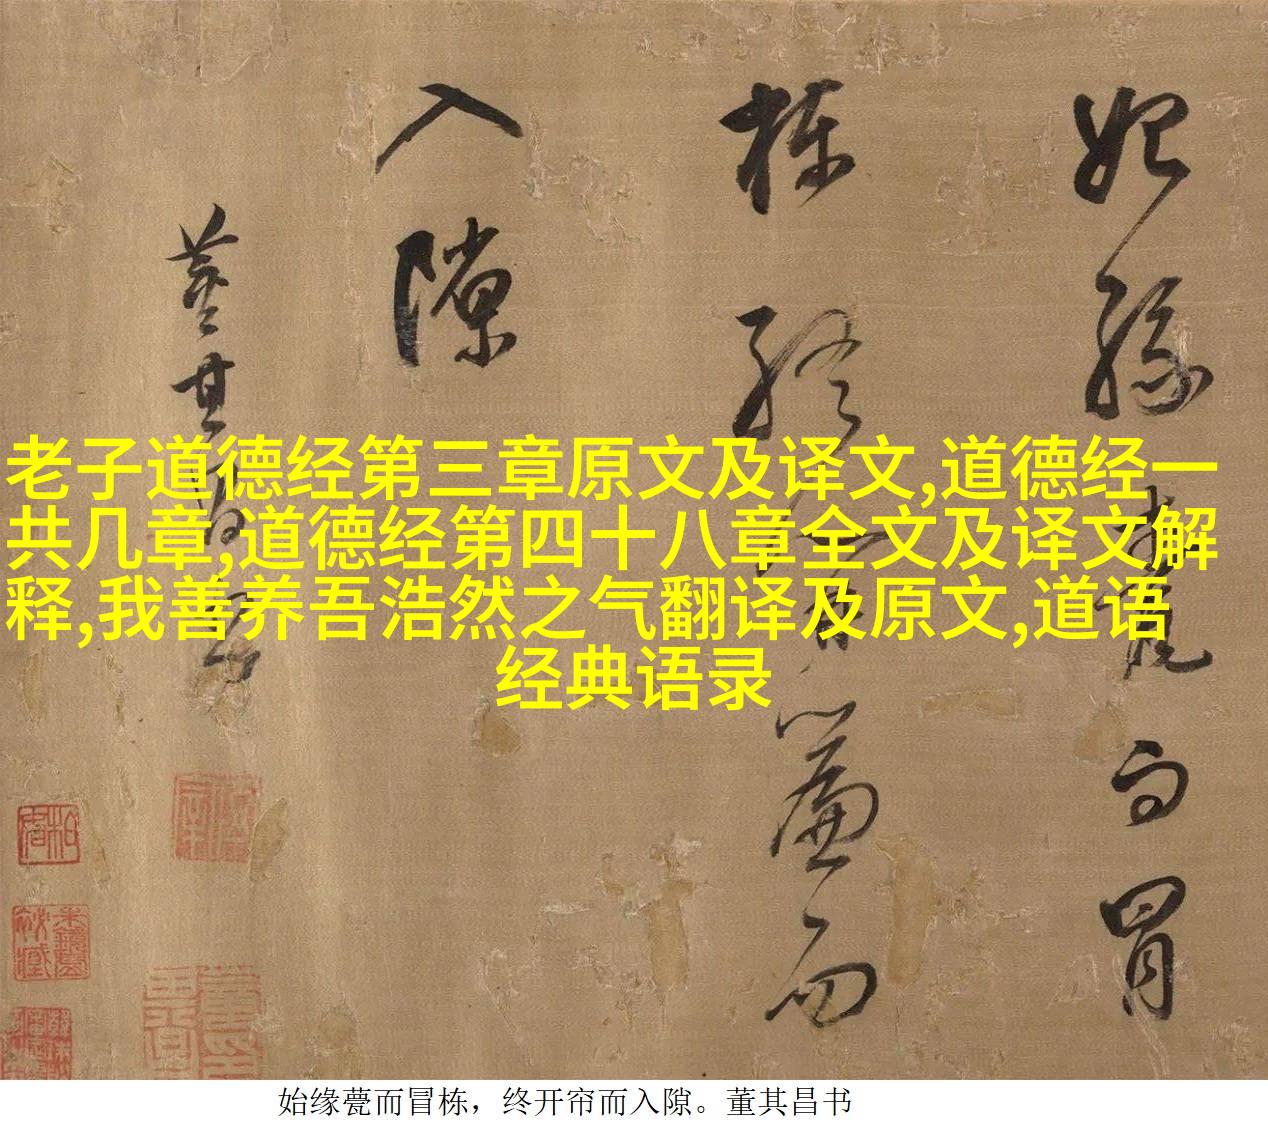 始缘甍而冒
栋终开帘而
入隙
董其昌书
老子道德经第三章原文及译文,道德经一
共几章,道德经第四十八章全文及译文解
释,我善养吾浩然之气翻译及原文,道语
经典语录
始缘甍而冒栋，终开帘而入隙。董其昌书